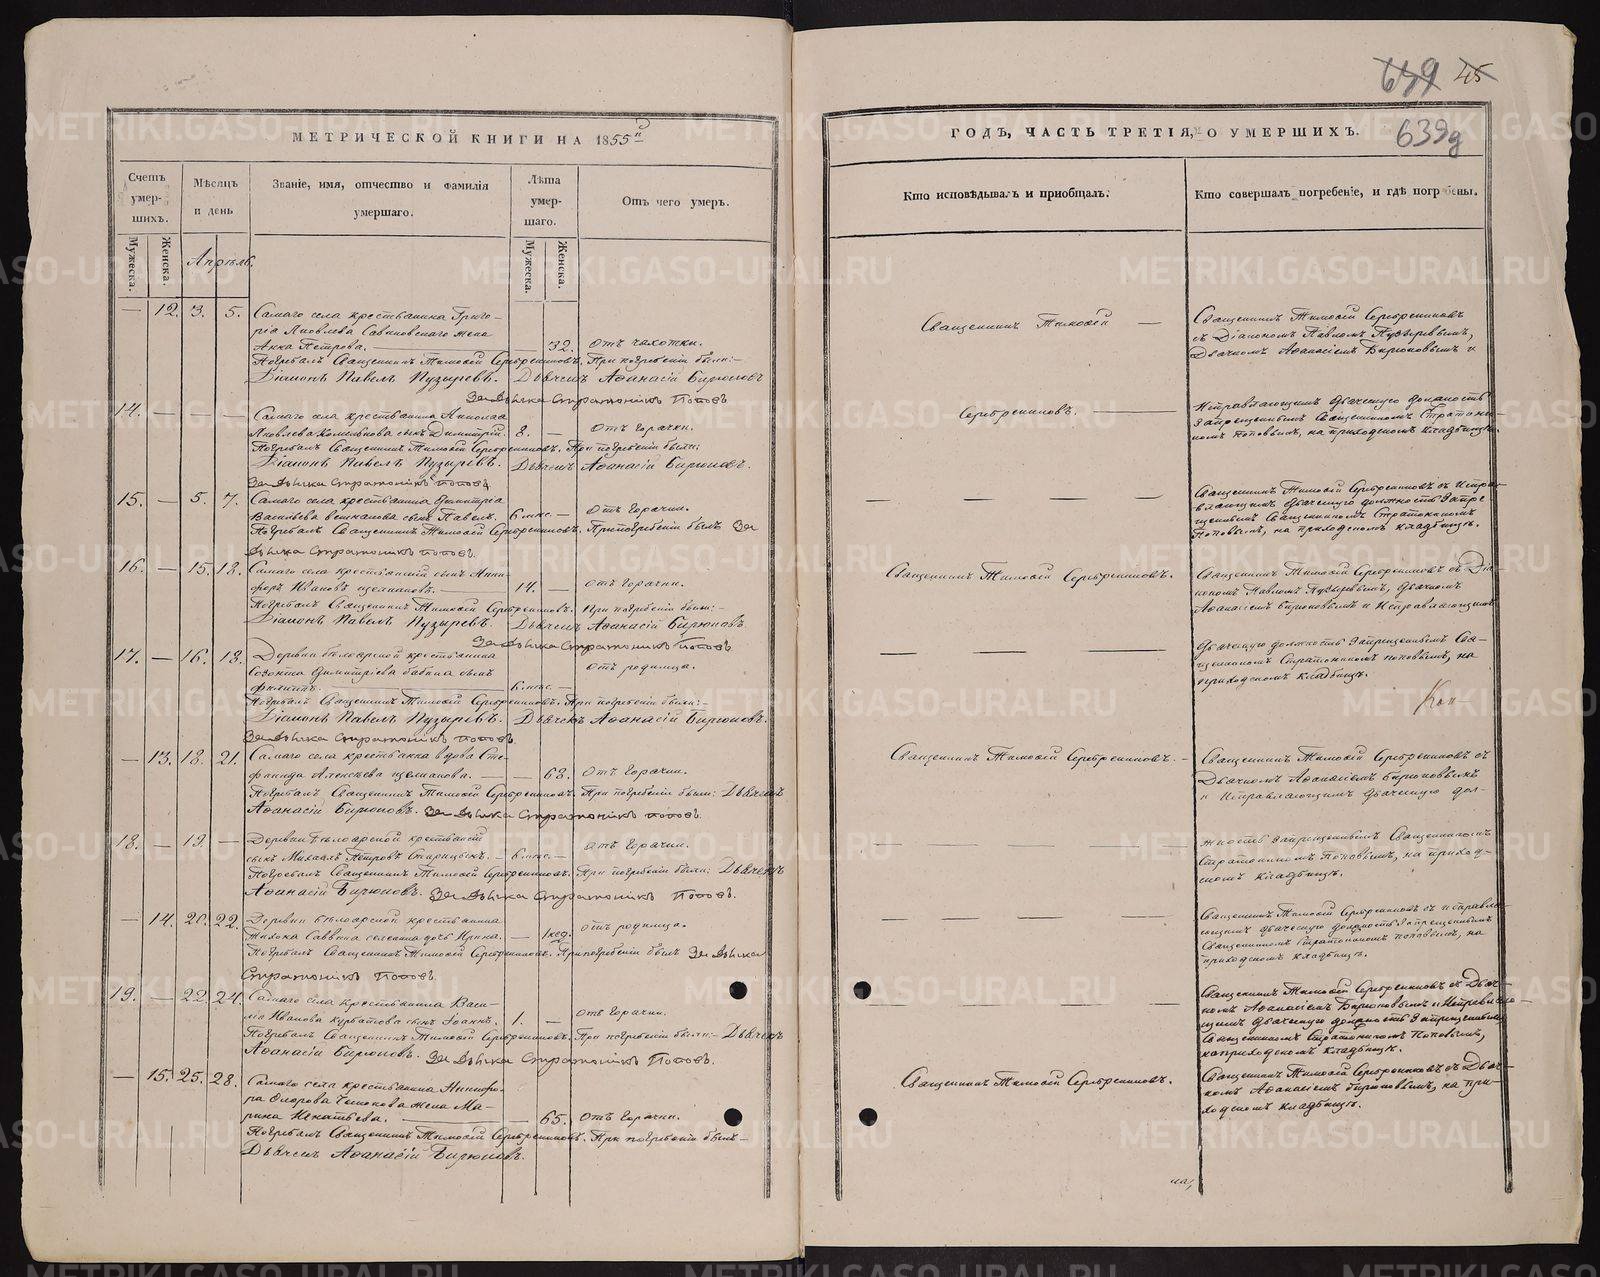 МЕТРИЧЕСКОЙ КНИГИ НА 1855й
Счетъ умершихъ.
Мужеска.
Женска.
Мѣсяцъ и день
Званіе, имя, отчество и фамилія умершаго.
Лѣта умершаго.
Мужеска.
Женска.
Отъ чего умеръ.
Апрѣль.
— 12. 3. 5. Самаго села крестьянина Григо-
рія Яковлева жена
Анна Петрова. — 32. отъ чахотки.
Погребалъ Священникъ Тимоѳей Серебренниковъ. При погребеніи были:—
Діаконъ Павелъ Пузыревъ. Дьячекъ Аѳанасій Бирюковъ
За дьячка Стратоникъ Поповъ
14. — — — Самаго села крестьянина Николая
Яковлева сынъ Димитрій. 8. — Отъ горячки.
Погребалъ Священникъ Тимоѳей Серебренниковъ. При погребеніи были:
Діаконъ Павелъ Пузыревъ. Дьячекъ Аѳанасій Бирюковъ.
За дьячка Стратоникъ Поповъ
15. — 5. 7. Самаго села крестьянина Димитрія
Васильева сынъ Павелъ. 6 мис. — отъ горячки.
Погребалъ Священникъ Тимоѳей Серебренниковъ. При погребеніи былъ За
дьячка Стратоникъ Поповъ.
16. — 15. 18. Самаго села крестьянскій сынъ Ники-
форъ Ивановъ 14. — отъ горячки.
Погребалъ Священникъ Тимоѳей Серебренниковъ. При погребеніи были:—
Діаконъ Павелъ Пузыревъ. Дьячекъ Аѳанасій Бирюковъ.
За дьячка Стратоникъ Поповъ
17. — 16. 18. Деревни Бѣлоярской крестьянина
Созонта Димитріева Бабина сынъ отъ родимца.
Филиппъ. 6 мис. —
Погребалъ Священникъ Тимоѳей Серебренниковъ. При погребеніи были:—
Діаконъ Павелъ Пузыревъ. Дьячекъ Аѳанасій Бирюковъ.
За дьячка Стратоникъ Поповъ.
— 13. 18. 21. Самаго села крестьянка вдова Сте-
фанида Алексѣева — 63. отъ горячки.
Погребалъ Священникъ Тимоѳей Серебренниковъ. При погребеніи были: Дьячекъ
Аѳанасій Бирюковъ. За дьячка Стратоникъ Поповъ.
18. — 19. — Деревни Бѣлоярской крестьянскій отъ горячки.
сынъ Михаилъ Петровъ 6 мис. —
Погребалъ Священникъ Тимоѳей Серебренниковъ. При погребеніи были: Дьячекъ
Аѳанасій Бирюковъ. За дьячка Стратоникъ Поповъ.
— 14. 20. 22. Деревни Бѣлоярской крестьянина отъ родимца.
Тихона Саввина дочь Ирина. — 1 нед.
Погребалъ Священникъ Тимоѳей Серебренниковъ. При погребеніи былъ За дьячка
Стратоникъ Поповъ.
19. — 22. 24. Самаго села крестьянина Васи-
лія Иванова Курбатова сынъ Іоаннъ. 1. — отъ горячки.
Погребалъ Священникъ Тимоѳей Серебренниковъ. При погребеніи были:— Дьячекъ
Аѳанасій Бирюковъ. За дьячка Стратоникъ Поповъ.
— 15. 25. 28. Самаго села крестьянина Никифо-
ра Ѳедорова жена Ма-
рина Игнатьева. — 65. отъ горячки.
Погребалъ Священникъ Тимоѳей Серебренниковъ. При погребеніи былъ—
Дьячекъ Аѳанасій Бирюковъ.
639 45
639д
ГОДЪ, ЧАСТЬ ТРЕТІЯ, О УМЕРШИХЪ.
Кто исповѣдывалъ и пріобщалъ.
Кто совершалъ погребеніе, и гдѣ погребены.
Священникъ Тимоѳей —
Серебренниковъ. —
Священникъ Тимоѳей Серебренниковъ.
Священникъ Тимоѳей Серебренниковъ.
Священникъ Тимоѳей Серебренниковъ.
Священникъ Тимоѳей Серебренниковъ
съ Діакономъ Павломъ Пузыревымъ,
Дьячкомъ Аѳанасіемъ Бирюковымъ и
Исправляющимъ дьяческую должность
Запрещеннымъ Священникомъ Стратони-
комъ Поповымъ, на приходскомъ кладбищѣ.
Священникъ Тимоѳей Серебренниковъ съ Испра-
вляющимъ дьяческую должность Запре
щеннымъ Священникомъ Стратоникомъ
Поповымъ, на приходскомъ кладбищѣ.
Священникъ Тимоѳей Серебренниковъ съ Діа-
кономъ Павломъ Пузыревымъ, дьячкомъ
Аѳанасіемъ Бирюковымъ и Исправляющимъ
дьяческую должность Запрещеннымъ Свя-
щенникомъ Стратоникомъ Поповымъ, на
приходскомъ кладбищѣ.
Коп
Священникъ Тимоѳей Серебренниковъ съ
Дьячкомъ Аѳанасіемъ Бирюковымъ
и Исправляющимъ дьяческую дол-
жность Запрещеннымъ Священникомъ
Стратоникомъ Поповымъ, на приход-
скомъ кладбищѣ.
Священникъ Тимоѳей Серебренниковъ съ исправля-
ющимъ дьяческую должность Запрещеннымъ
Священникомъ Стратоникомъ Поповымъ, на
приходскомъ кладбищѣ.
Священникъ Тимоѳей Серебренниковъ съ Дьяч-
комъ Аѳанасіемъ Бирюковымъ и Исправляю-
щимъ дьяческую должность Запрещеннымъ
Священникомъ Стратоникомъ Поповымъ,
на приходскомъ кладбищѣ.
Священникъ Тимоѳей Серебренниковъ съ Дьяч-
комъ Аѳанасіемъ Бирюковымъ, на при-
ходскомъ кладбищѣ.
METRIKI.GASO-URAL.RU